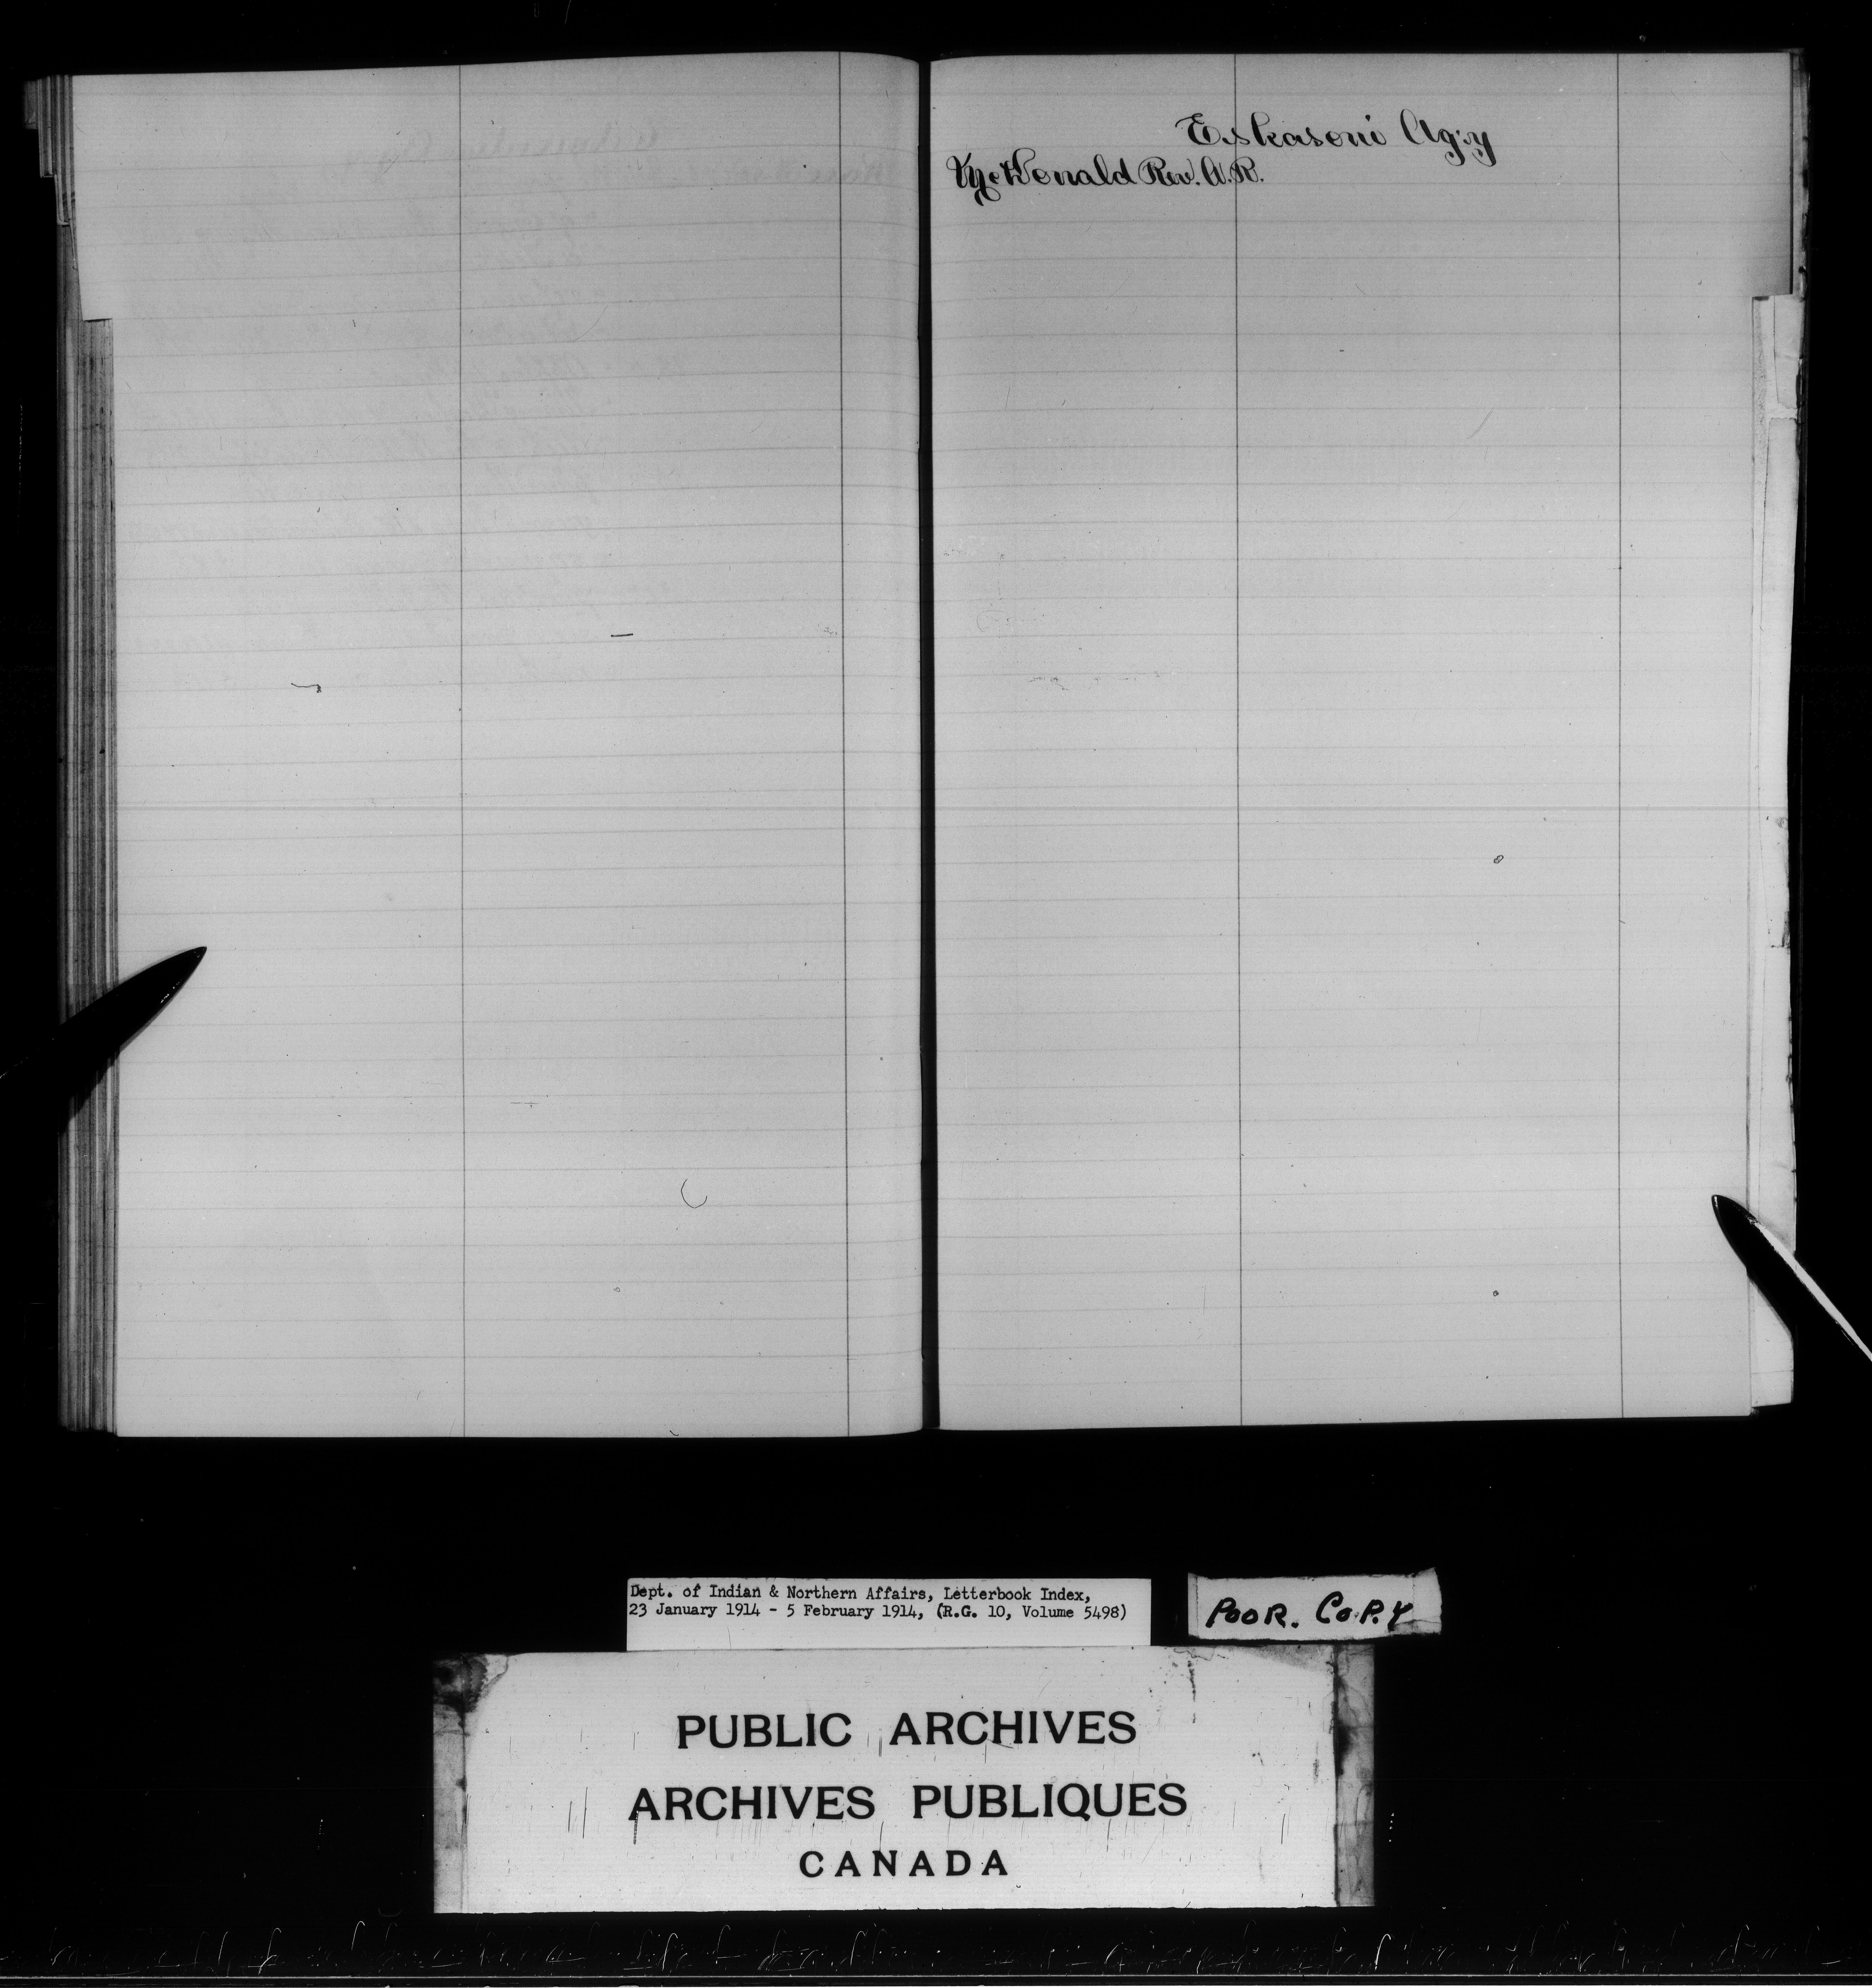 Eskasoni Ag:y
McDonald Rev. A.R.
Dept. of Indian & Northern Affairs, Letterbook Index,
23 January 1914 - 5 February 1914, (R.G. 10, Volume 5498)
POOR. COPY
PUBLIC ARCHIVES
ARCHIVES PUBLIQUES
CANADA